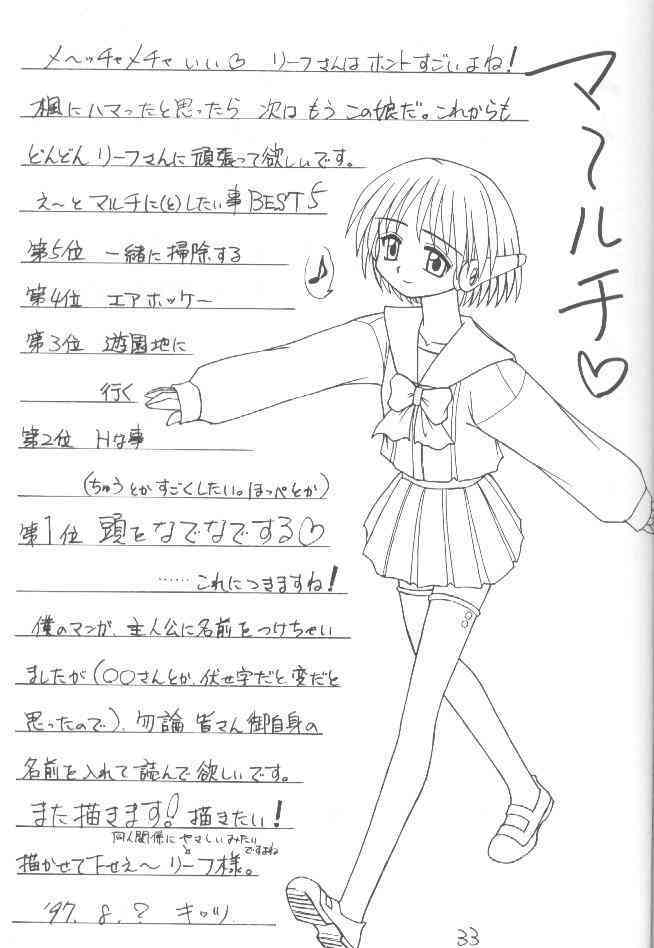 マールチ♡
メ〜ッチャメチャ いい♡ リーフさんは ホントすごいよね!
楓にハマったと思ったら 次は もう この娘だ。これからも
どんどん リーフさんに 頑張って欲しいです。
え〜と マルチに(と)したい事 BEST5
第5位 一緒に掃除する
第4位 エアホッケー
第3位 遊園地に
行く
第2位 Hな事
(ちゅうとかすごくしたい。ほっぺとか)
第1位 頭をなでなでする♡
……これにつきますね!
僕のマンガ、主人公に名前をつけちゃい
ましたが(○○さんとか、伏せ字だと変だと
思ったので)、勿論 皆さん御自身の
名前を入れて 読んで欲しいです。
また描きます! 描きたい!
同人関係に やさしいみたい
ですよね
描かせて下せえ〜 リーフ様。
'97. 8. ? キッツ
♪
33